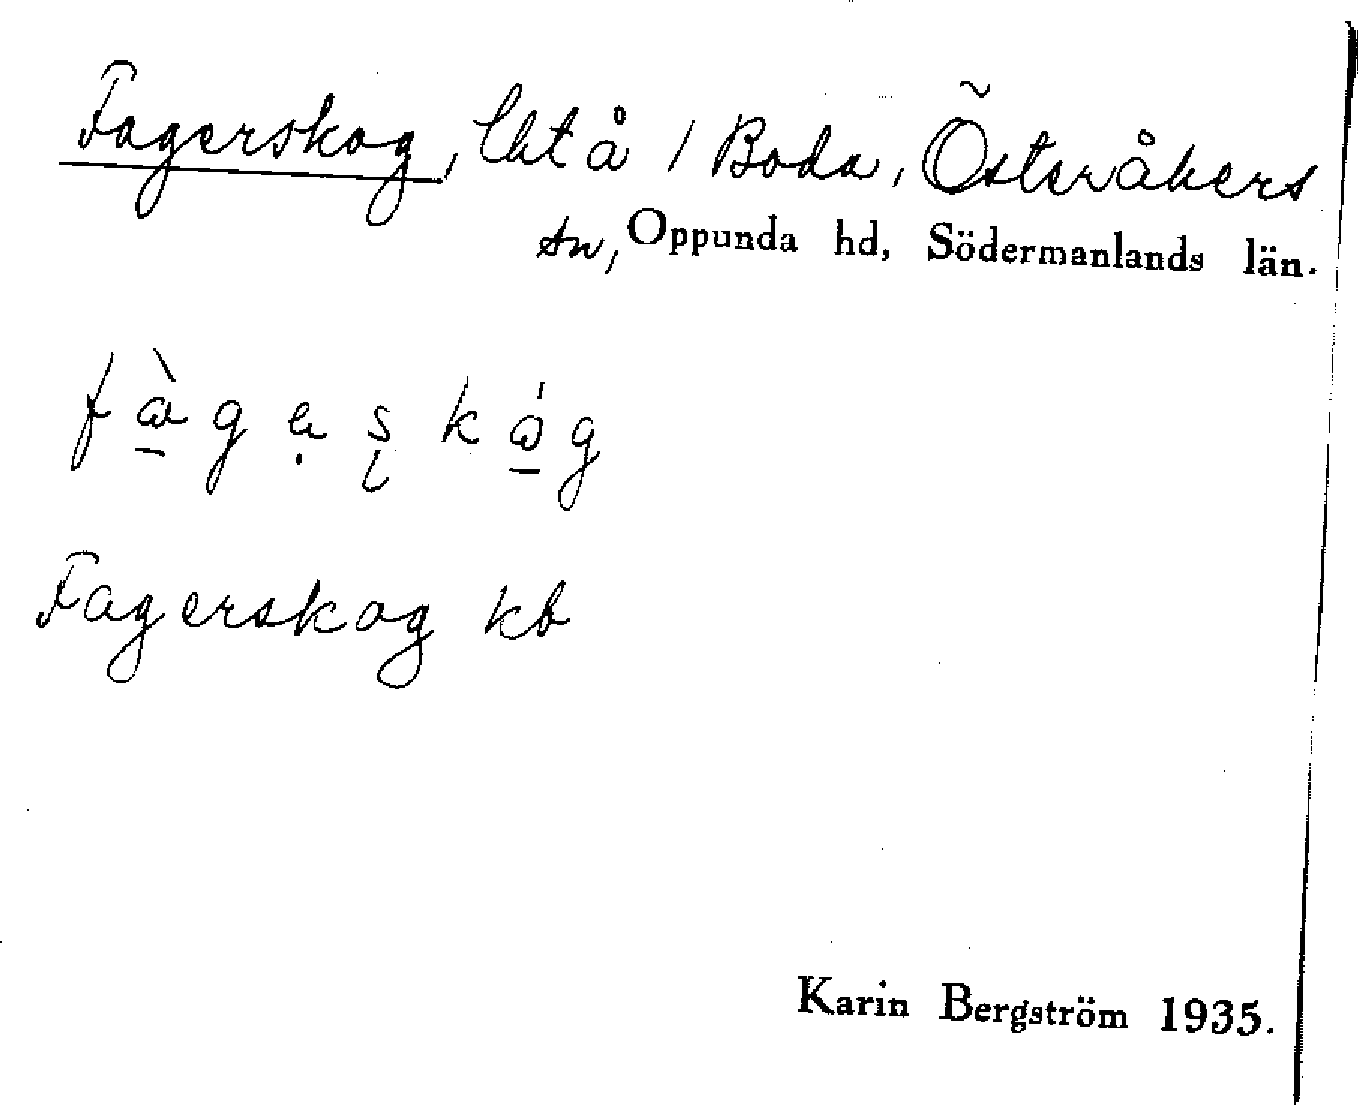 Fagerskog, lht å / Boda, Österåkers
sn, Oppunda hd, Södermanlands län.
Fagerskog kb
Karin Bergström 1935.